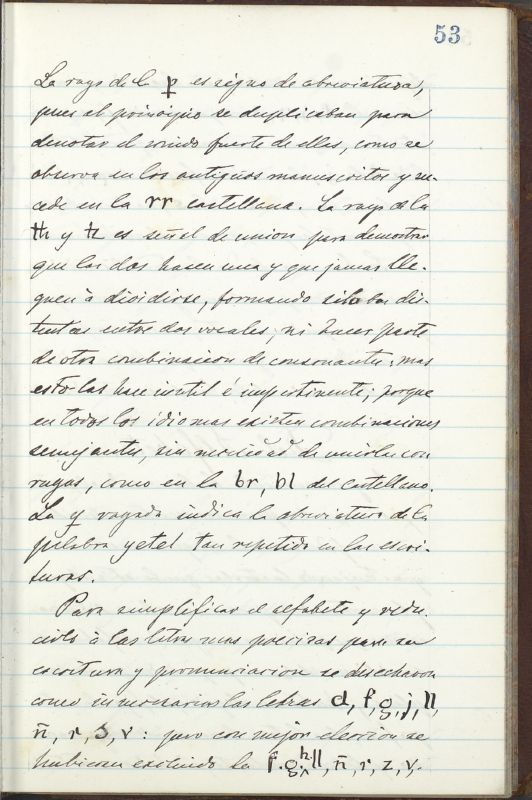 53
La raya de la ꝑ es signo de abreviatura,
pues al principio se duplicaban para
denotar el sonido fuerte de ellas, como se
observa en los antiguos manuscritos y su-
cede en la rr castellana. La raya de la
th y tz es señal de union para demostrar
que las dos hacen una y que jamas lle-
guen à dividirse, formando silabas dis-
tintas entre dos vocales, ni hacer parte
de otra combinacion de consonantes; mas
esto las hace inutil é impertinente; porque
en todos los idiomas existen combinaciones
semejantes, sin necesidad de unirlas con
rayas, como en la br, bl del castellano.
La y rayada indica la abreviatura de la
palabra yetel tan repetida en las escri-
turas.
Para simplificar el alfabeto y redu-
cirlo à las letras mas precisas para su
escritura y pronunciacion se desecharon
como innecesarias las letras d, f, g, j, ll,
ñ, r, s, v: pero con mejor eleccion se
hubieran excluido la f. g. h ll, ñ, r, z, v,